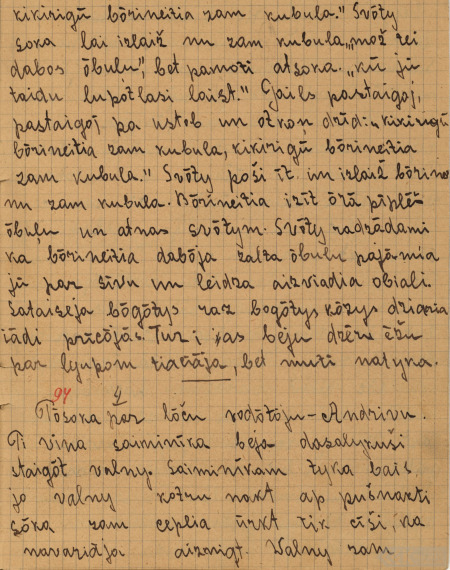 kikirigū bōrineitia zam kubula." Svōty
soka lai izlaiž nu zam kubula „mož zei
dabos ōbulu", bet pamōti atsoka. „kū jū
taidu lupotlasi laist." Gails pastaigoj,
pastaigoj pa ustob un ōtkoņ drīd: „kikirigū
bōrineitia zam kubula, kikirigū bōrineitia
zam kubula." Svōty poši īt un izlaiž bōrine
nu zam kubula. Bōrineitia izīt ōrā pīplēš
ōbuļu un atnas svōtym. Svōty radzādami
ka bōrineitia dabōja zalta ōbulu pajāmia
jū par sīvu un leidza aizviadia obiali.
Sataiseja bōgōtys raz bogōtys kōzys dzigria
iādi prīcōjās. Tur i as beju dzēru ēžu
par lyupom tiatāja, bet muti natyka.
94 4
Tōsoka par lōču vodōtōju – Andrivu.
Ti vīna saiminīka beja dasalykuši
staigōt valny. Saiminīkam tyka bais.
jo valny kotru nakt ap pušnakti
sōka zam ceplia ūrkt tik cīši, ka
navariāja aizmigt. Valny zam